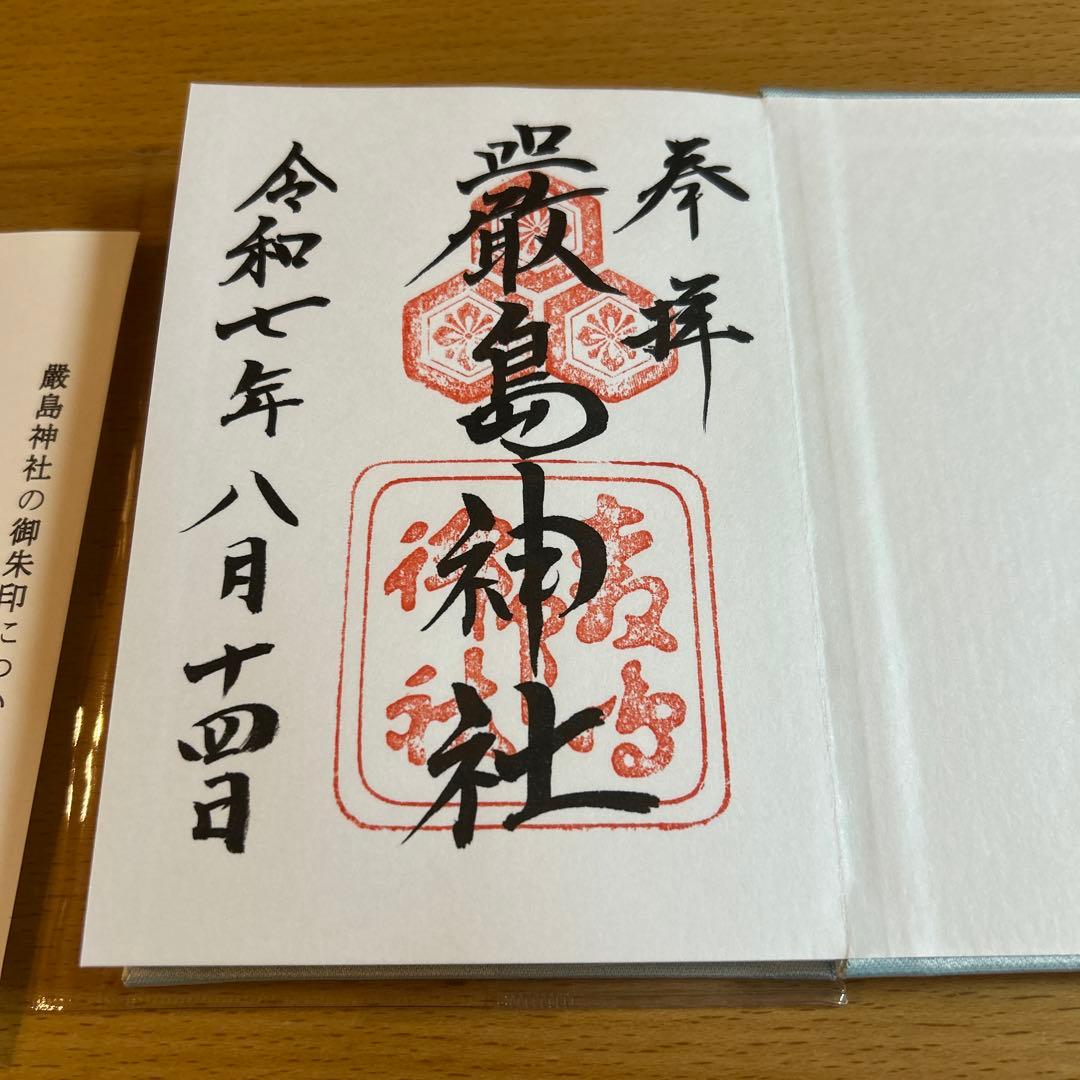 奉拝
嚴島神社
令和七年八月十四日
嚴島神社の御朱印につい